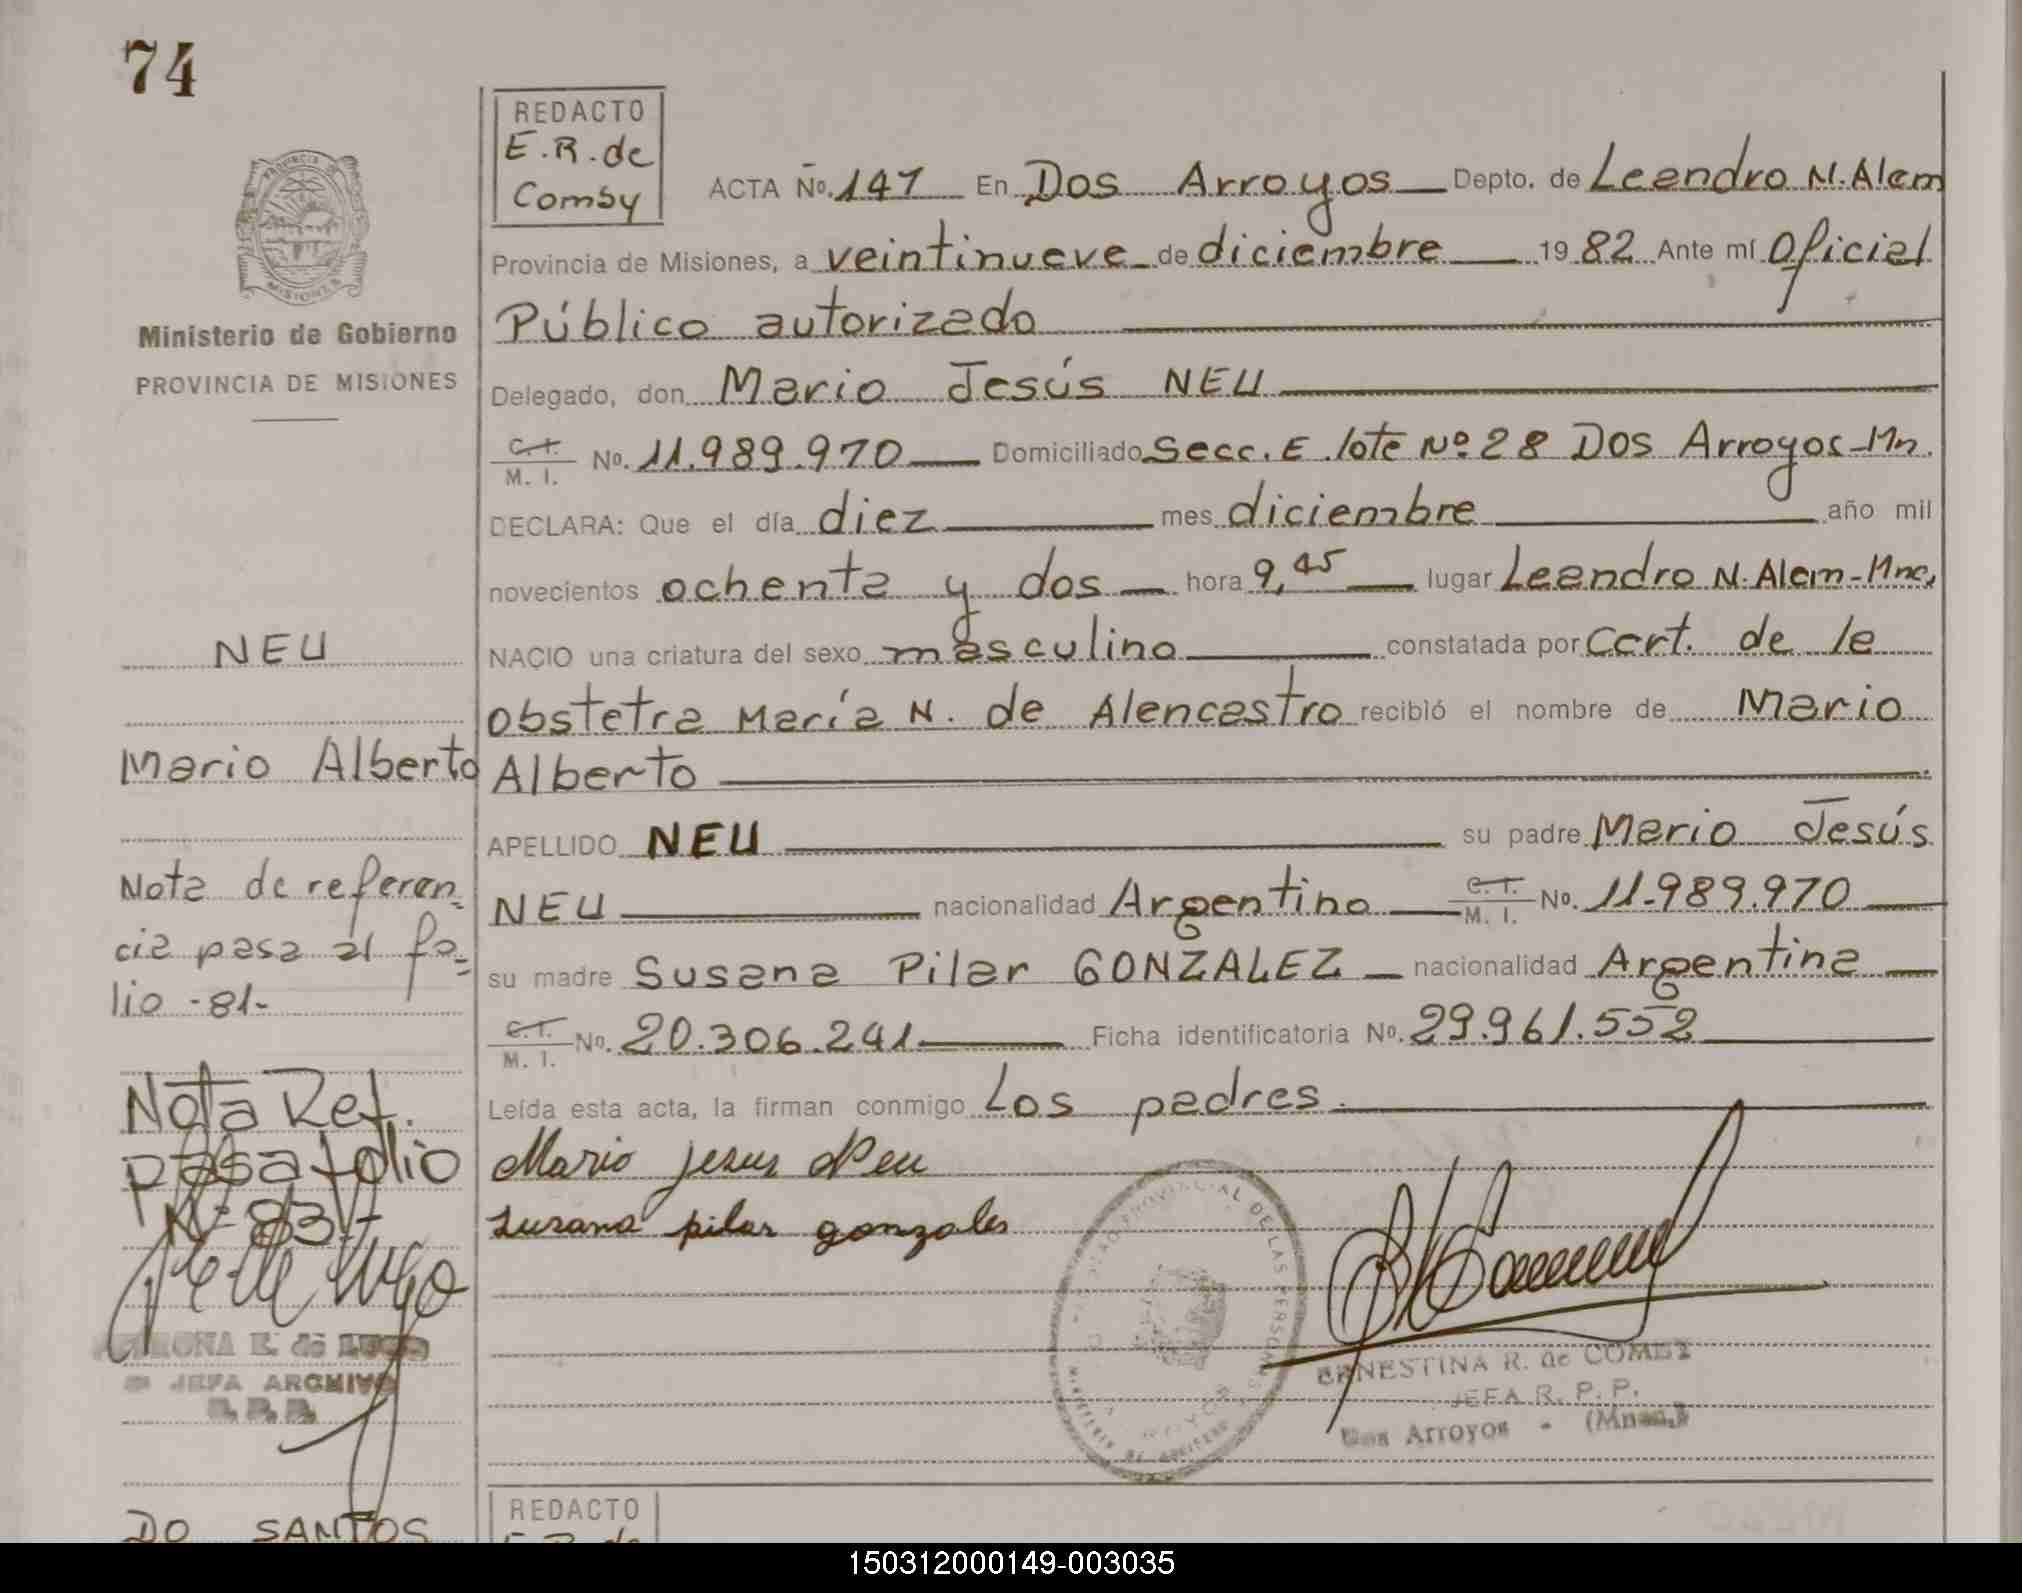 74
REDACTO
E.R. de
Comby
ACTA No. 147 En Dos Arroyos Depto. de Leandro N. Alem
Provincia de Misiones, a veintinueve de diciembre 1982 Ante mí Oficial
Público autorizado
Delegado, don Mario Jesús NEU
C.I. M. I. No. 11.989.970 Domiciliado Secc. E lote Nº 28 Dos Arroyos-Mn.
DECLARA: Que el día diez mes diciembre año mil
novecientos ochenta y dos hora 9,45 lugar Leandro N. Alem-Mnes.
NACIO una criatura del sexo masculino constatada por Cert. de la
obstetra María N. de Alencastro recibió el nombre de Mario
Alberto
APELLIDO NEU su padre Mario Jesús
NEU nacionalidad Argentino C.I. M. I. No. 11.989.970
su madre Susana Pilar GONZALEZ nacionalidad Argentina
C.I. M. I. No. 20.306.241 Ficha identificatoria No. 29.961.552
Leída esta acta, la firman conmigo Los padres.
Mario Jesus Neu
Susana pilar gonzales
ERNESTINA R. de COMBY
JEFA R. P. P.
Dos Arroyos - (Mnes.)
PROVINCIA DE
MISIONES
Ministerio de Gobierno
PROVINCIA DE MISIONES
NEU
Mario Alberto
Nota de referen=
cia pasa al fo=
lio -81-
Nota Ref.
pasa folio
Nº 83-
E. de LUGO
JEFA ARCHIVO
DO SANTOS
REDACTO
E.R. de
150312000149-003035